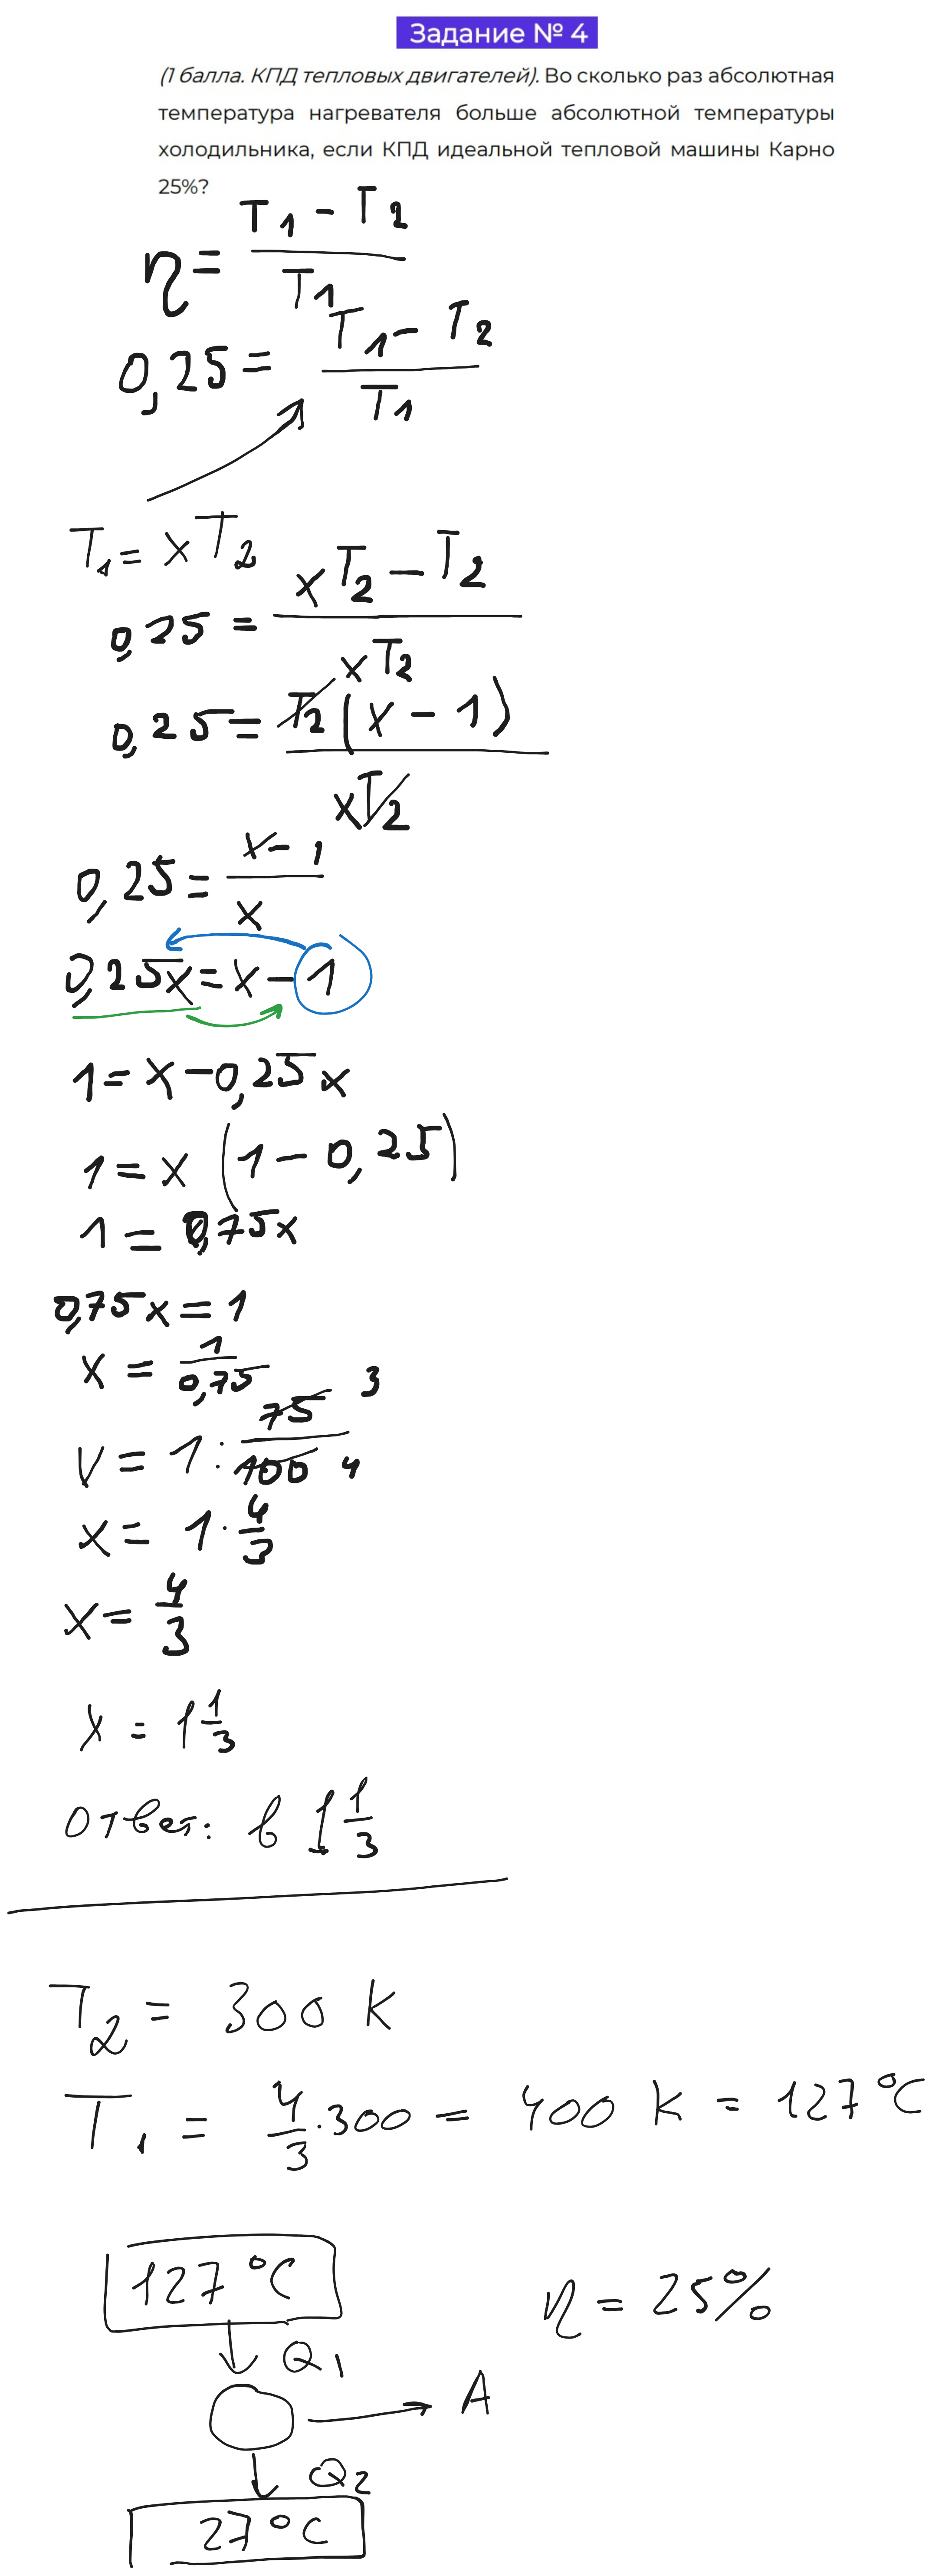 Задание № 4
(1 балла. КПД тепловых двигателей). Во сколько раз абсолютная
температура нагревателя больше абсолютной температуры
холодильника, если КПД идеальной тепловой машины Карно
25%?
η = (T1 - T2) / T1
0,25 = (T1 - T2) / T1
T1 = xT2
0,25 = (xT2 - T2) / xT2
0,25 = T2(x - 1) / xT2
0,25 = (x - 1) / x
0,25x = x - 1
1 = x - 0,25x
1 = x (1 - 0,25)
1 = 0,75x
0,75x = 1
x = 1 / 0,75
x = 1 : 75/100 3 4
x = 1 · 4/3
x = 4/3
x = 1 1/3
Ответ: в 1 1/3
T2 = 300 K
T1 = 4/3 · 300 = 400 K = 127 °C
127 °C
η = 25%
Q1
A
Q2
27 °C